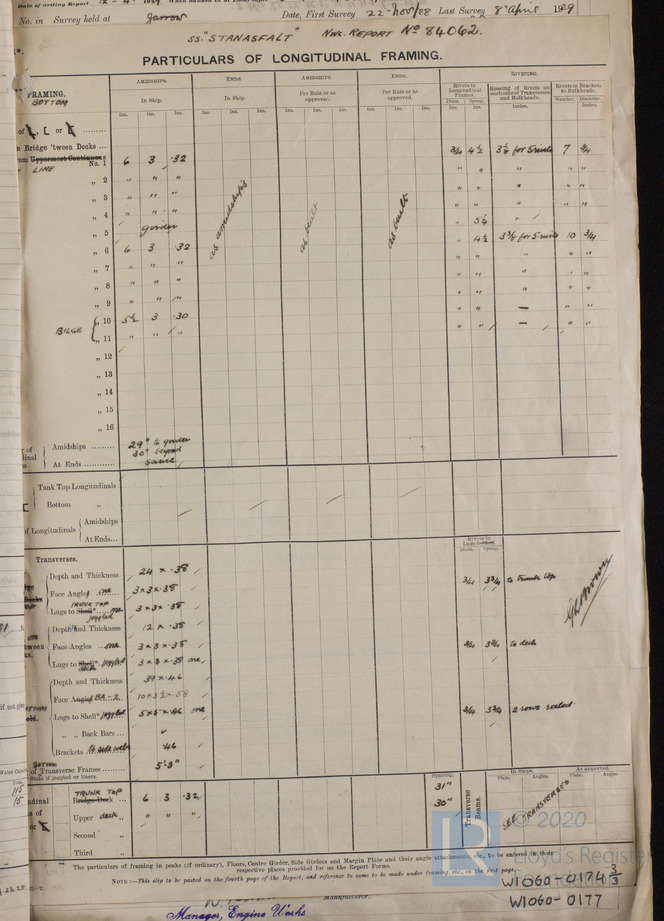 No. in Survey held at Jarrow Date, First Survey 22-Nov/28 Last Survey 8 April 1929
SS. "STANASFALT" Nwc. REPORT No 84062.
PARTICULARS OF LONGITUDINAL FRAMING.
FRAMING. AMIDSHIPS. ENDS. AMIDSHIPS. ENDS. RIVETING.
BOTTOM In Ship. In Ship. Per Rule or as approved. Per Rule or as approved. Rivets in Longitudinal Frames. Spacing of Rivets on each side of Transverses and Bulkheads. Rivets in Brackets to Bulkheads.
Ins. Ins. Ins. Ins. Ins. Ins. Ins. Ins. Ins. Ins. Ins. Ins. Diam. Spcng. Inches. Number. Diameter Inches.
Bridge 'tween Decks ...
LINE No. 1 6 3 .32 3/4 4½ 7 3/4
„ 2 " " " " " " " "
„ 3 " " " " " " " "
„ 4 " " " " " " " "
„ 5 girder " 5¼ "
„ 6 6 3 .32 " 4½ 3⅜ for 5 rivets 10 3/4
„ 7 " " " " " " " "
„ 8 " " " " " " " "
„ 9 " " " " " " " "
BILGE „ 10 5½ 3 .30 " " — " "
„ 11 " " " " " — " "
as amidships
as built
as built
„ 12
„ 13
„ 14
„ 15
„ 16
Amidships ......... 29" to girder
30" beyond
At Ends ............ same
Tank Top Longitudinals
Bottom „
of Longitudinals Amidships
At Ends...
Rivets in Lugs to
Diam. Spcng.
Transverses.
Depth and Thickness 24 × .38 3/4 3¾ to trunk top
Face Angles one 3 × 3 × .38
TRUNK TOP
Lugs to Shell one 3 × 3 × .38
joggled
Depth and Thickness 12 × .38
Face Angles one 3 × 3 × .38 to deck
Lugs to Shell joggled 3 × 3 × .38 one
deck
Depth and Thickness 39 × .46
Face Angles BA-2 10 × 3½ × .58
Lugs to Shell joggled 5 × 5 × .46 one 3/4 3¾ 2 rows reeled
„ „ Back Bars ...
Brackets to side webs .46
of Transverse Frames ......... 5'3"
State if joggled or liners.
Spacing In Ship. As approved.
Plate. Angles. Plate. Angles.
TRUNK TOP
Bridge Deck ... 6 3 .32 31"
Upper deck ... " " " 30"
Second „
Third „
Transverse Beams.
SEE TRANSVERSES
© 2020
Lloyd's Register
The particulars of framing in peaks (if ordinary), Floors, Centre Girder, Side Girders and Margin Plate and their angle attachments, etc., to be entered in their
respective places provided for on the Report Forms.
NOTE:—This slip to be pasted on the fourth page of the Report, and reference to same to be made under framing, etc., on the first page.
W1060-0174 3/3
W1060-0177
Manufacturer.
Manager, Engine Works